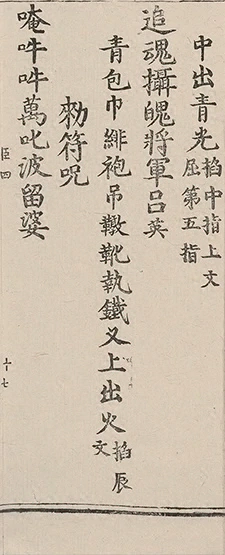 中出青光掐中指上文屈第五指
追魂攝魄將軍吕英
青包巾緋袍吊䩫靴執鐵叉上出火掐辰文
勑符咒
唵吽吽萬叱波留娑
臣四
十七